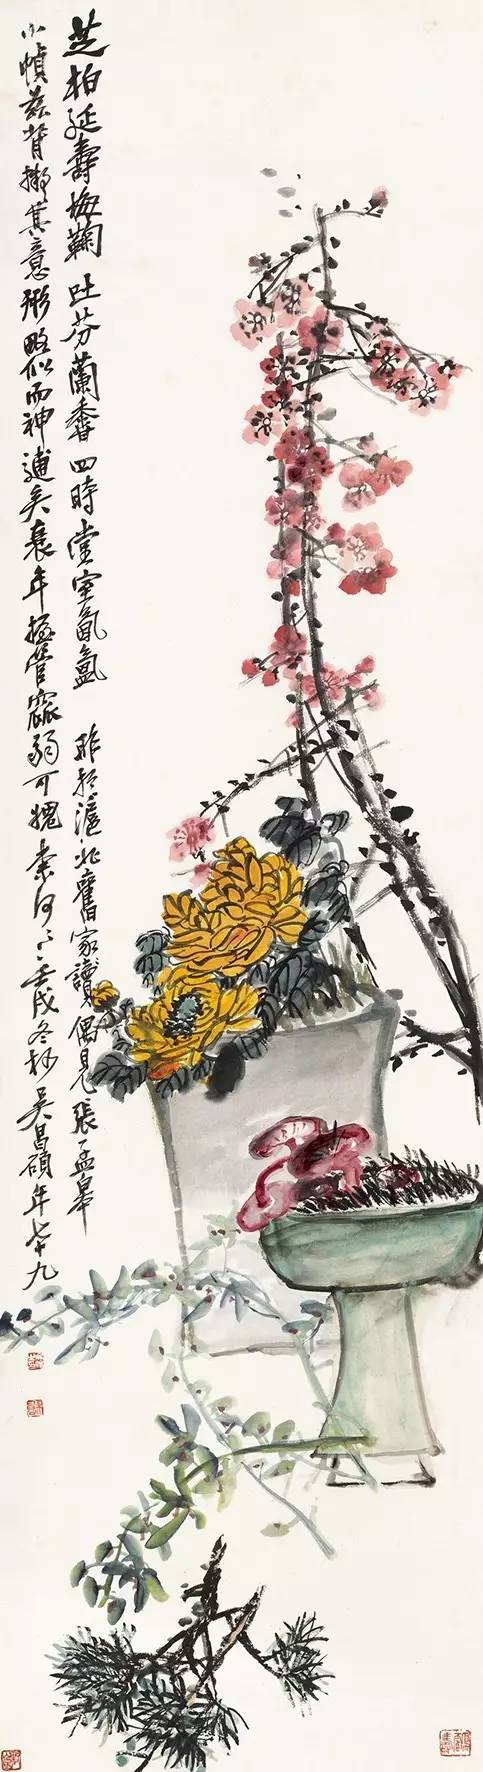 芝柏延壽梅鞠吐芬蘭香四時堂室氤氳 昨於滬北舊家讀偶見張孟皋
小幀茲背撫其意形略似而神逋矣衰年握管孱弱可愧奈何奈何壬戌冬杪吳昌碩年七十九